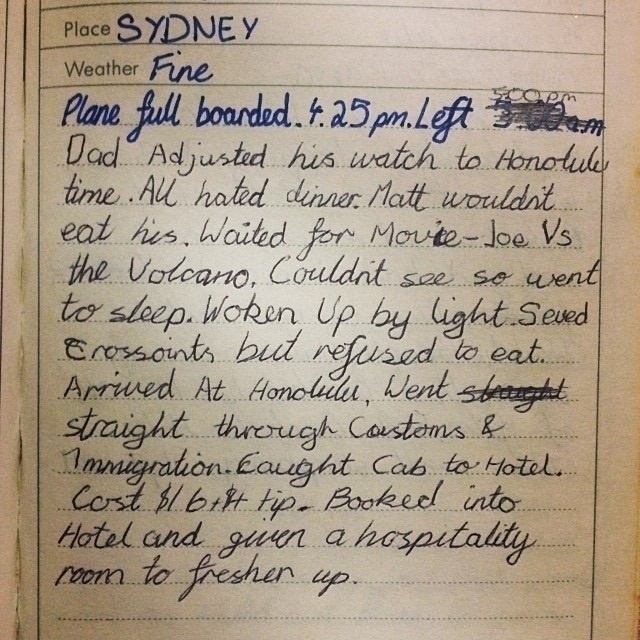 Place SYDNEY
Weather Fine
5:00pm
Plane full boarded. 4.25pm. Left
Dad Adjusted his watch to Honolulu
time. All hated dinner. Matt wouldn't
eat his. Waited for Movie - Joe Vs
the Volcano. Couldn't see so went
to sleep. Woken Up by light. Seved
Crossoints but refused to eat.
Arrived At Honolulu, Went straight
straight through Customs &
Immigration. Caught Cab to Hotel.
Cost $16 + $4 tip. Booked into
Hotel and given a hospitality
room to freshen up.